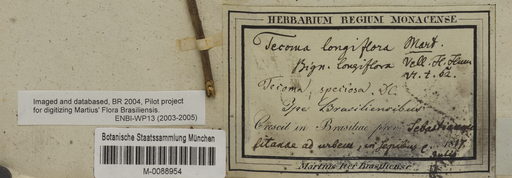 HERBARIUM REGIUM MONACENSE
Tecoma longiflora Mart.
Bign. longiflora Vell. Fl. Flum
VI. t. 62.
Tecoma speciosa DC.
Ype Brasiliensibus
Crescit in Brasiliae prov. Sebastianopolitanae
ad urbem, in sepibus
1817.
Martius Iter Brasiliense.
Imaged and databased, BR 2004, Pilot project
for digitizing Martius' Flora Brasiliensis.
ENBI-WP13 (2003-2005)
Botanische Staatssammlung München
M-0088954